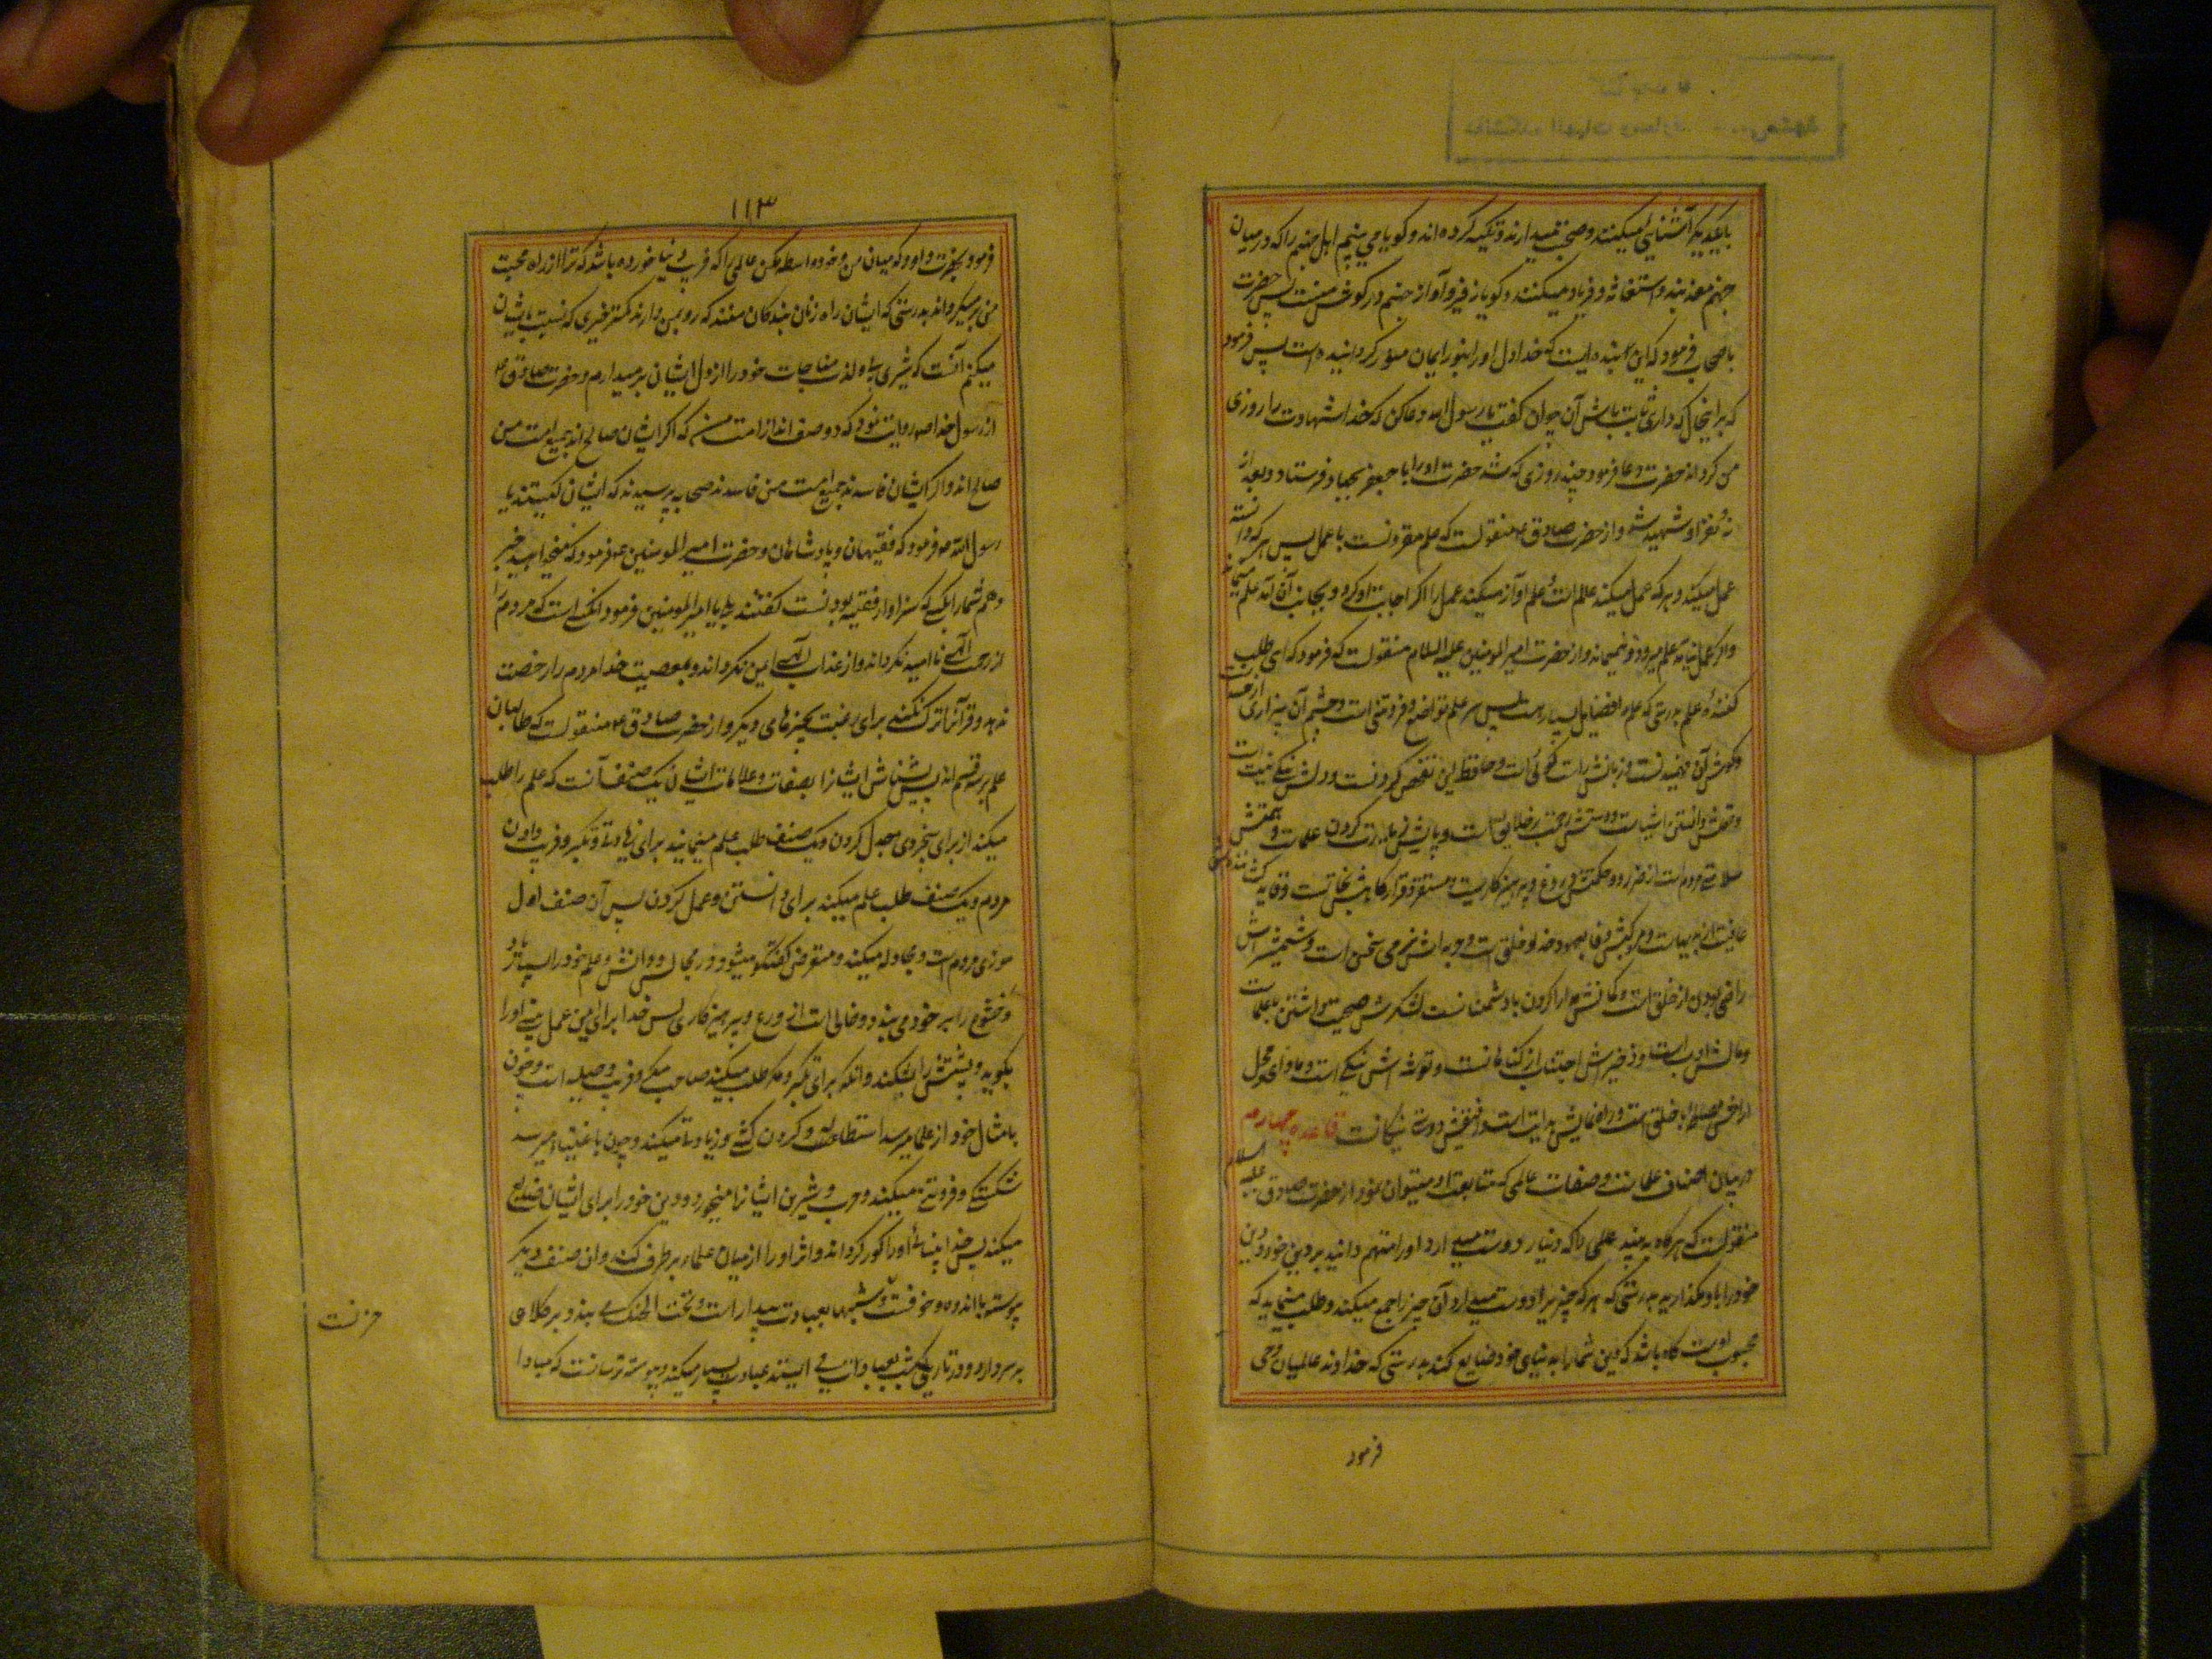 با یکدیگر آشنایی میکنند و صحبت میدارند و تکیه کرده اند و گویا می بینم اهل جهنم را که در میان
جهنم معذبند و استغاثه و فریاد میکنند و گویا زفیر و آواز جهنم در گوش منست پس حضرت
باصحاب فرمود که این بنده ایست که خدا دل او را بنور ایمان منور گردانیده است پس فرمود
که بر اینحال که داری ثابت باش آن جوان گفت یا رسول الله دعا کن که خدا شهادت را روزی
من گرداند حضرت دعا فرمود چند روزی که شد حضرت او را با جعفر بجهاد فرستاد و بعد از
نه نفر او شهید شد و از حضرت صادق ع منقولست که علم مقرونست با عمل پس هر که دانسته
عمل میکند و هر که عمل میکند عالم است و علم آواز میکند عمل را اگر اجابت او کرد و بجانب آن آمد علم میماند
و اگر عمل نیامد علم میرود و نمیماند و از حضرت امیر المومنین علیه السلام منقولست که فرمود که ای طلب
کننده علم بدرستی که علم را فضایل بسیار هست پس سر علم تواضع و فروتنی است و چشم آن بیزاری از حسد است
و گوش آن فهمیدنست و زبانش راست گوئی است و حافظه اش تفحص کردنست و دلش نیکی نیت است
و عقلش دانستن اشیاست و دستش رحمت بر خلایق است و پایش زیارت کردن علما است و همتش
سلامتی مردم است از ضرر او و حکمتش ورع و پرهیزکاریست و مستقر و قرارگاهش نجاتست و قاید کشنده اش
عافیت از بدیهاست و مرکبش وفا بعهود خدا و خلق است و حربه اش نرمی سخن است و شمشیرش
راضی بودن از خلق است و کمانش مدارا کردن با دشمنانست لشکرش صحبت داشتن با علماست
و مالش ادب است و ذخیره اش اجتناب از گناهانست و توشه اش نیکی است و ماوای و محل
آرامش مصالحه با خلق است و راه نمایش هدایت است و رفیقش دوستی نیکانست قاعده چهارم
در بیان اصناف علماست و صفات عالمی که متابعت او میتوان نمود از حضرت صادق علیه السلام
منقولست که هرگاه ببینید عالمی را که دنیا را دوست میدارد او را متهم دانید بر دین خود و دین
خود را باو مگذارید بدرستی که هر که چیزی را دوست میدارد آن چیز را جمع میکند و طلب مینماید که
محبوب اوست گاه باشد که دین شما را به دنیای خود ضایع کند بدرستی که خداوند عالمیان وحی
فرمود
۱۱۳
فرمود بحضرت داود که میان من و خود واسطه مکن عالمی را که فریب دنیا خورده باشد که ترا از راه محبت
من بر میگرداند بدرستی که ایشان راه زنان بندگان منند که رو بمن دارند کمتر چیزی که نسبت بایشان
میکنم آنست که شیرینی لذت مناجات خود را از دل ایشان بر میدارم و حضرت صادق ع
از رسول خدا ص روایت نمود که دو صنف اند از امت من که اگر ایشان صالح اند جمیع امت من
صالح اند و اگر ایشان فاسدند جمیع امت من فاسدند صحابه پرسیدند که ایشان کیستند یا
رسول الله ص فرمود که فقیهان و پادشاهان و حضرت امیر المومنین ع فرمود که میخواهید خبر
دهم شما را بکسی که سزاوار فقیه بودنست گفتند بلی یا امیر المومنین فرمود آنکسی است که مردم را
از رحمت الهی ناامید نگرداند و از عذاب الهی ایمن نگرداند و بمعصیت خدا مردم را رخصت
ندهد و قرآن را ترک نکند برای رغبت بچیزهای دیگر و از حضرت صادق ع منقولست که طالبان
علم بر سه قسم اند پس بشناس ایشان را بصفات و علامات ایشان یک صنف آنست که علم را طلب
میکند از برای بیخردی و جدل کردن و یک صنف طلب علم مینمایند برای زیادتی و تکبر و فریب دادن
مردم و یک صنف طلب علم میکند برای دانستن و عمل کردن پس آن صنف اول
موذی مردم است و مجادله میکند و متعرض گفتگو میشود در مجالس و دانش و علم خود را بسیار
و خشوع را بر خود می بندد و خالی است از ورع و پرهیزکاری پس خدا برای این عمل بینی او را
بکوبد و پشتش را بشکند و آنکه برای تکبر و مکر طلب میکند صاحب مکر و فریب و حیله است و چون
بامثال خود از علما میرسد استطالت و گردن کشی و زیادتی میکند و چون باغنیا میرسد
شکستگی و فروتنی میکند و چرب و شیرین ایشان را میخورد و دین خود را برای ایشان ضایع
میکند پس خدا بینائی او را کور گرداند و اثر او را از میان علماء بر طرف کند و آن صنف دیگر
پیوسته با اندوه و خوفست و شبها بعبادت بیدار است و تحت الحنک می بندد بر کلاهی
بر سر دارد و در تاریکی شب بعبادت می ایستد عبادت بسیار میکند و پیوسته ترسانست که مبادا
حزنست